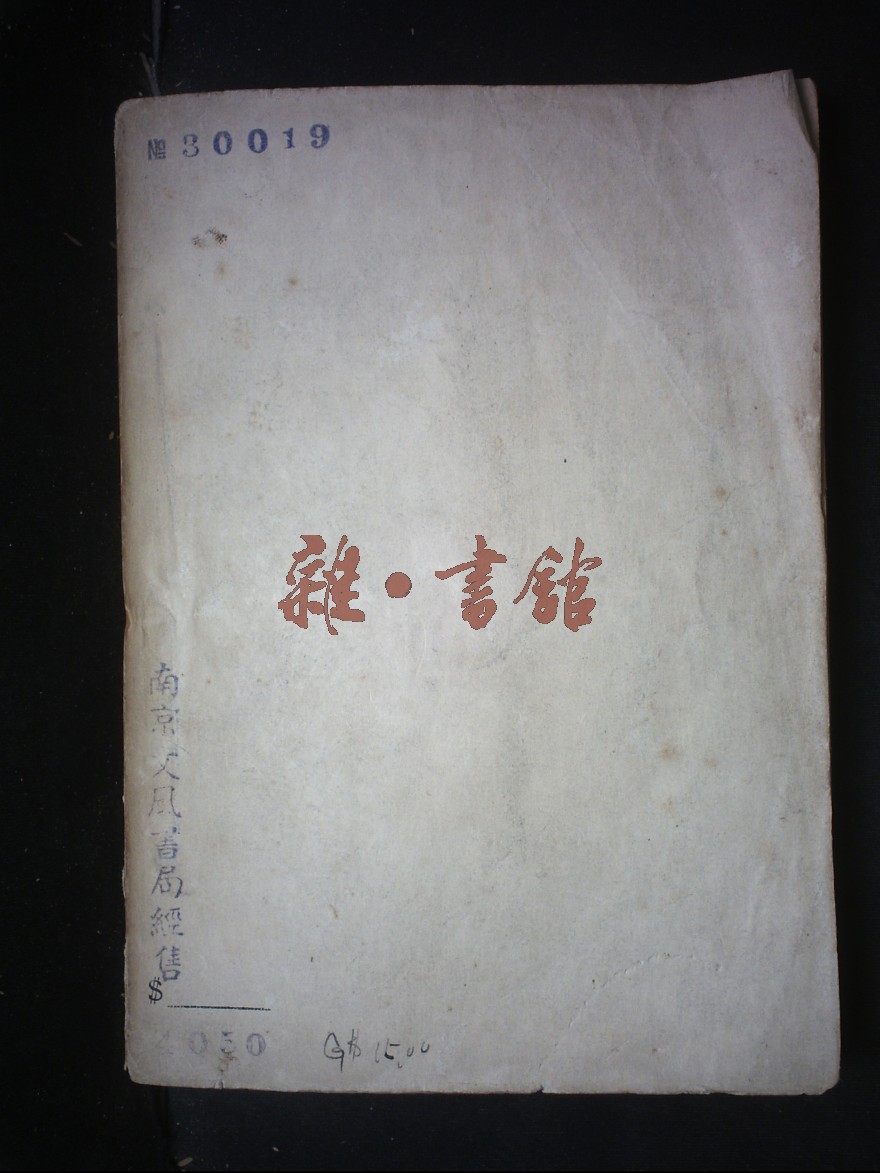 № 30019
雜·書館
南京文风書局經售
$
4050
G$ 15.00